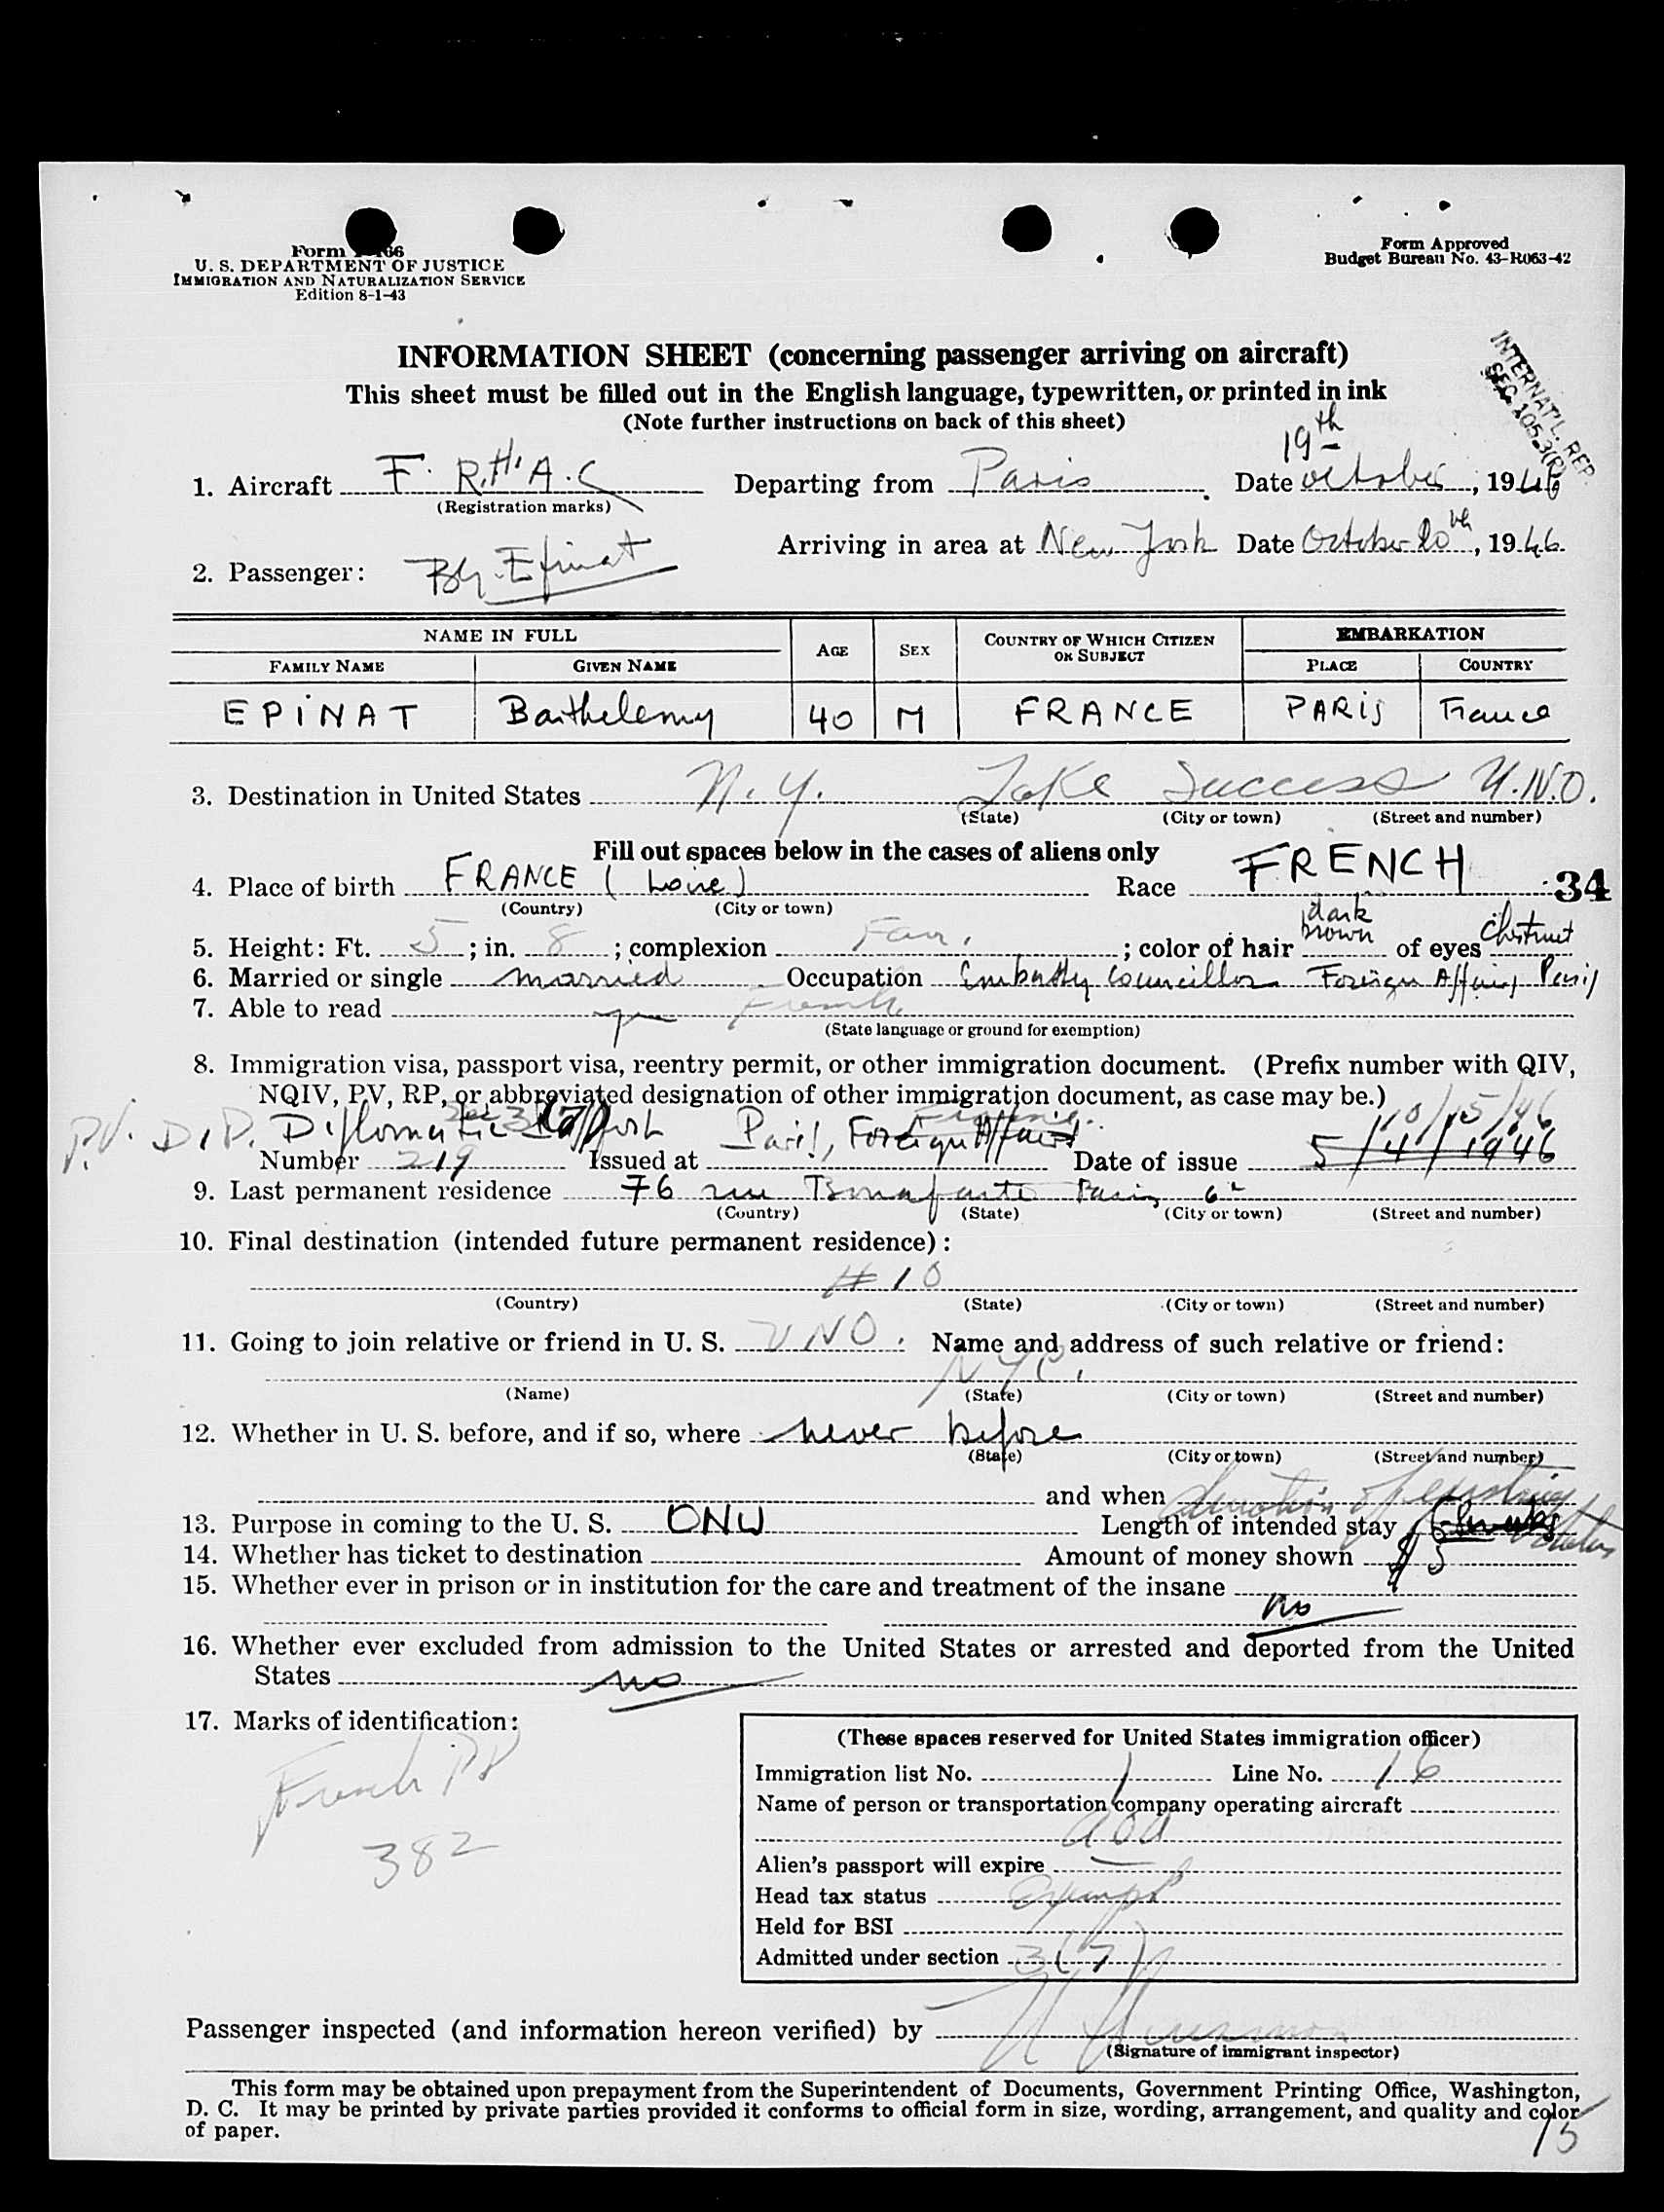 Form 66
U. S. DEPARTMENT OF JUSTICE
IMMIGRATION AND NATURALIZATION SERVICE
Edition 8-1-43
Form Approved
Budget Bureau No. 43-R063-42
INTERNAT'L. REP.
SEC. 1053(R)
INFORMATION SHEET (concerning passenger arriving on aircraft)
This sheet must be filled out in the English language, typewritten, or printed in ink
(Note further instructions on back of this sheet)
1. Aircraft F. R.H.A.C Departing from Paris Date 19th october, 1946
(Registration marks)
Arriving in area at New York Date October 20th, 1946
2. Passenger: Epinat
NAME IN FULL AGE SEX COUNTRY OF WHICH CITIZEN OR SUBJECT EMBARKATION
FAMILY NAME GIVEN NAME PLACE COUNTRY
EPINAT Barthelemy 40 M FRANCE PARIS France
3. Destination in United States N.Y. Lake Success U.N.O.
(State) (City or town) (Street and number)
Fill out spaces below in the cases of aliens only
4. Place of birth FRANCE (Loire) Race FRENCH 34
(Country) (City or town)
5. Height: Ft. 5; in. 8; complexion Fair; color of hair dark brown of eyes chestnut
6. Married or single married Occupation Embassy Councillor Foreign Affairs Paris
7. Able to read yes French
(State language or ground for exemption)
8. Immigration visa, passport visa, reentry permit, or other immigration document. (Prefix number with QIV,
NQIV, PV, RP, or abbreviated designation of other immigration document, as case may be.)
P.V. D.P. Diplomatic Sec 3(7) Paris, Foreign Affairs France 10/15/46
Number 219 Issued at Date of issue 5/4/1946
9. Last permanent residence 76 rue Bonaparte Paris 6e
(Country) (State) (City or town) (Street and number)
10. Final destination (intended future permanent residence):
# 10
(Country) (State) (City or town) (Street and number)
11. Going to join relative or friend in U. S. UNO. Name and address of such relative or friend:
NYC.
(Name) (State) (City or town) (Street and number)
12. Whether in U. S. before, and if so, where never before
(State) (City or town) (Street and number)
and when duration of
13. Purpose in coming to the U. S. ONU Length of intended stay
14. Whether has ticket to destination Amount of money shown $5
15. Whether ever in prison or in institution for the care and treatment of the insane
no
16. Whether ever excluded from admission to the United States or arrested and deported from the United
States no
17. Marks of identification:
French PP
382
(These spaces reserved for United States immigration officer)
Immigration list No. 1 Line No. 16
Name of person or transportation company operating aircraft
aoa
Alien's passport will expire —
Head tax status Exempt
Held for BSI
Admitted under section 3(7)
Passenger inspected (and information hereon verified) by
(Signature of immigrant inspector)
This form may be obtained upon prepayment from the Superintendent of Documents, Government Printing Office, Washington,
D. C. It may be printed by private parties provided it conforms to official form in size, wording, arrangement, and quality and color
of paper.
15